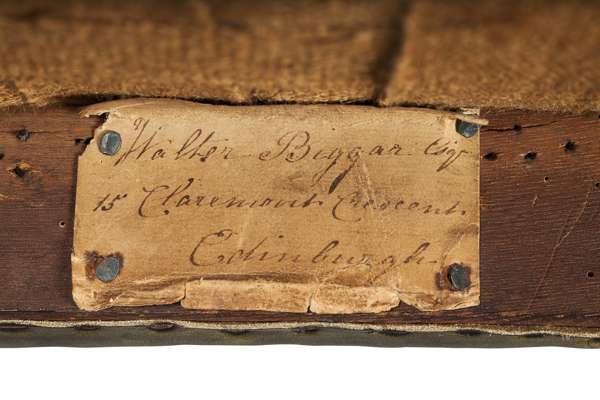 Walter Biggar Esqr
15 Claremont Crescent.
Edinburgh.